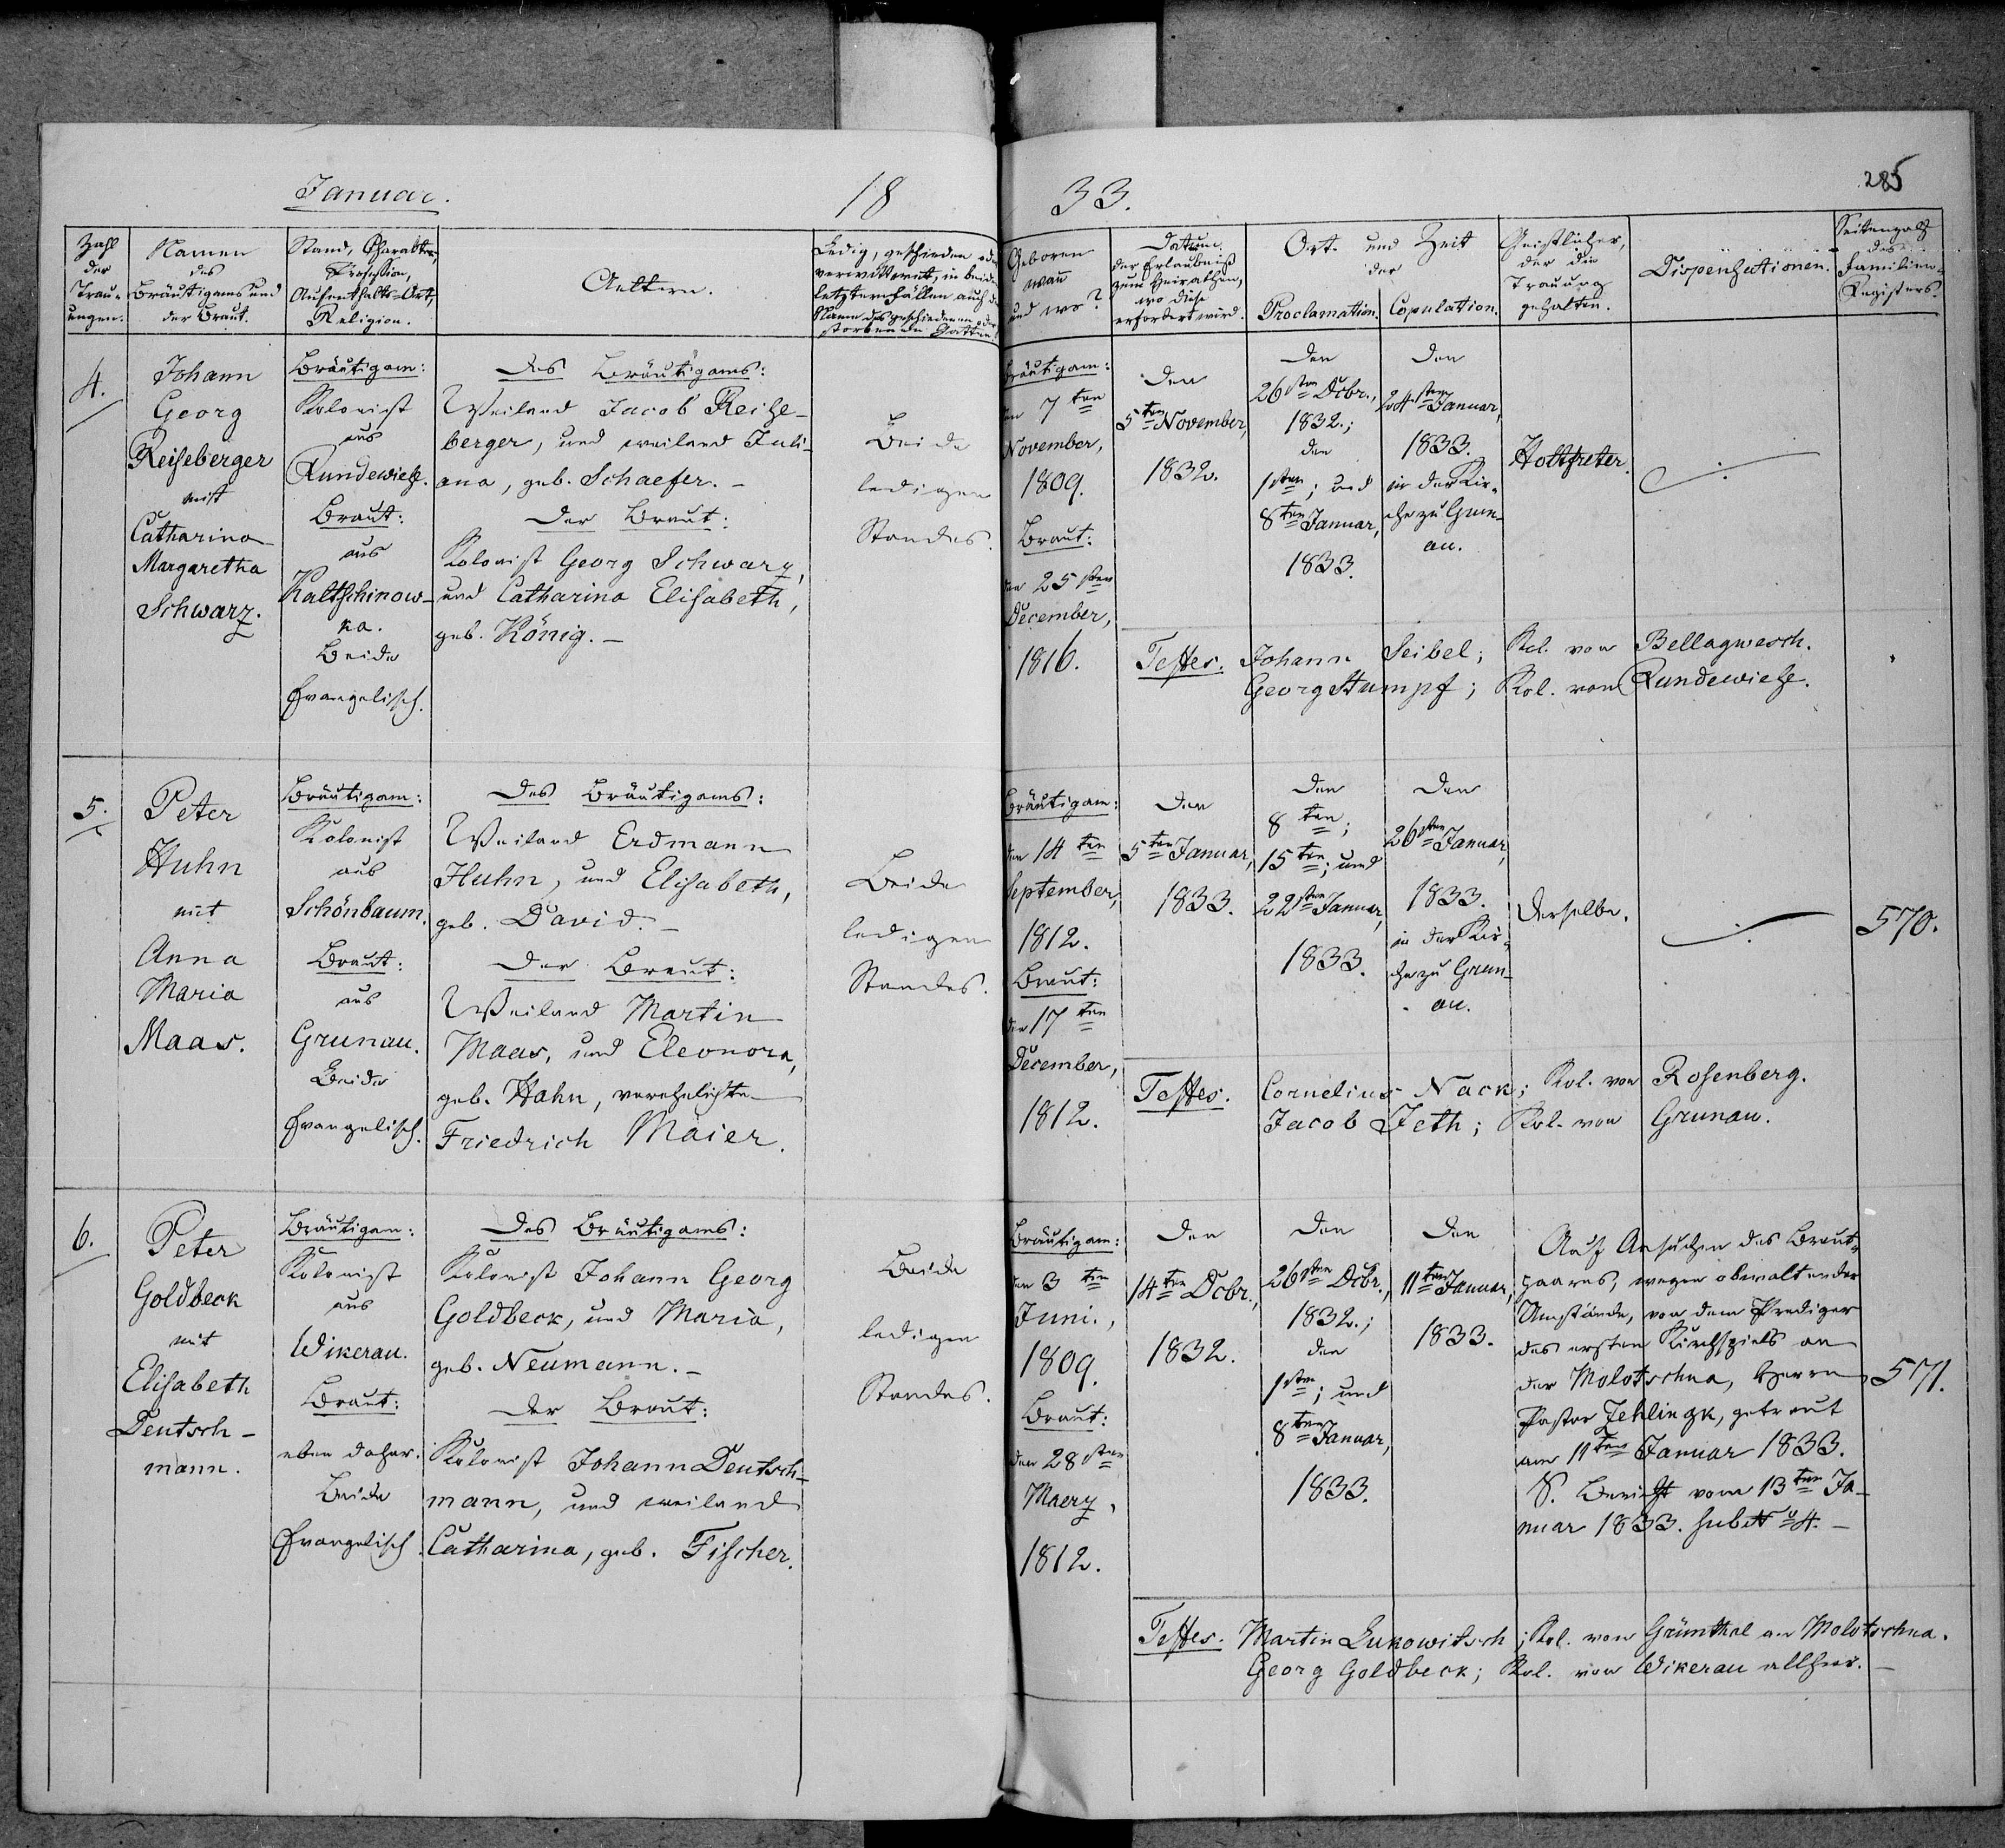 285
Januar.
18
33.
Zahl
der
Trau-
ungen.
Namen
des
Bräutigams und
der Braut.
Stand, Charakter,
Profession,
Aufenthalts-Ort,
Religion.
Aeltern.
Ledig, geschieden oder
verwittwet, in beiden
letztern Fällen auch
Name des geschiedenen oder
storbenen Gatten.
Geboren
wañ
und wo?
Datum
der Erlaubniß
zum Heirathen,
wo diese
erfordert wird.
Ort- und Zeit
der
Proclamation.
Copulation.
Geistlicher,
der die
Trauung
gehalten.
Dispensationen.
Seitenzahl
des
Familien-
Registers.
4.
Johann
Georg
Reiseberger
mit
Catharina
Margaretha
Schwarz.
Bräutigam:
Kolonist
aus
Rundewiese.
Braut:
aus
Kaltschinow-
ka.
Beide
Evangelisch.
Des Bräutigams:
Weiland Jacob Reise-
berger, und weiland Juli-
ana, geb. Schaefer. –
Der Braut:
Kolonist Georg Schwarz,
und Catharina Elisabeth,
geb. König. –
Beide
ledigen
Standes.
Bräutigam:
den 7ten
November,
1809.
Braut:
den 25sten
December,
1816.
Den
5ten November,
1832.
Den
26sten Dcbr.,
1832.;
den
1sten; und
8ten Januar,
1833.
Den
24sten Januar,
1833.
in der Kir-
che zu Grun-
au.
Holtfreter.
Testes. Johann Seibel; Kol. von Bellagwesch.
Georg Stumpf; Kol. von Rundewiese.
5.
Peter
Huhn
mit
Anna
Maria
Maas.
Bräutigam:
Kolonist
aus
Schönbaum.
Braut:
aus
Grunau.
Beide
Evangelisch.
Des Bräutigams:
Weiland Erdmann
Huhn, und Elisabeth,
geb. David. –
Der Braut:
Weiland Martin
Maas, und Eleonora,
geb. Hahn, verehelichte
Friedrich Maier.
Beide
ledigen
Standes.
Bräutigam:
den 14ten
September,
1812.
Braut:
den 17ten
December,
1812.
Den
5ten Januar,
1833.
Den
8ten;
15ten; und
22sten Januar,
1833.
Den
26sten Januar,
1833.
in der Kir-
che zu Grun-
au.
Derselbe.
570.
Testes. Cornelius Nack; Kol. von Rosenberg.
Jacob Jeth; Kol. von Grunau.
6.
Peter
Goldbeck
mit
Elisabeth
Deutsch-
mann.
Bräutigam:
Kolonist
aus
Wikerau.
Braut:
eben daher.
Beide
Evangelisch.
Des Bräutigams:
Kolonist Johann Georg
Goldbeck, und Maria,
geb. Neumann. –
Der Braut:
Kolonist Johann Deutsch-
mann, und weiland
Catharina, geb. Fischer.
Beide
ledigen
Standes.
Bräutigam:
den 3ten
Juni.,
1809.
Braut:
den 28sten
Maerz,
1812.
Den
14ten Dcbr.,
1832.
Den
26sten Dcbr.,
1832.;
den
1sten; und
8ten Januar,
1833.
Den
11ten Januar,
1833.
Auf Ansuchen des Braut-
paares, wegen obwaltender
Umstände, von dem Prediger
des ersten Kirchspiels an
der Molotschna, Herrn
Pastor, getraut
am 11ten Januar 1833.
S. Bericht vom 13ten Ja-
nuar 1833. sub No 4. –
571.
Testes. Martin Lukowitsch; Kol. von Grünthal an Molotschna.
Georg Goldbeck; Kol. von Wikerau allhier. –